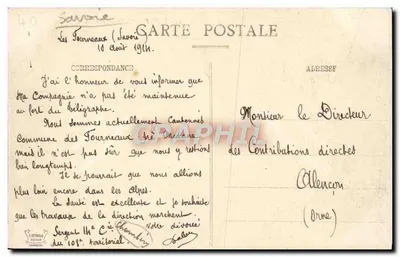 Savoie
CARTE POSTALE
Les Fourneaux (Savoie)
10 août 1914.
CORRESPONDANCE
ADRESSE
J'ai l'honneur de vous informer que
ma Compagnie n'a pas été maintenue
au fort du télégraphe.
Nous sommes actuellement cantonnés
Commune des Fourneaux
mais il n'est pas sûr que nous y restions
bien longtemps.
Il se pourrait que nous allions
plus loin encore dans les Alpes.
La santé est excellente et je souhaite
que les travaux de la direction marchent.
Votre dévoué
Sergent 14e Cie
du 108e territorial
Monsieur le Directeur
des Contributions directes
Alençon
(Orne)
CPAPHIL